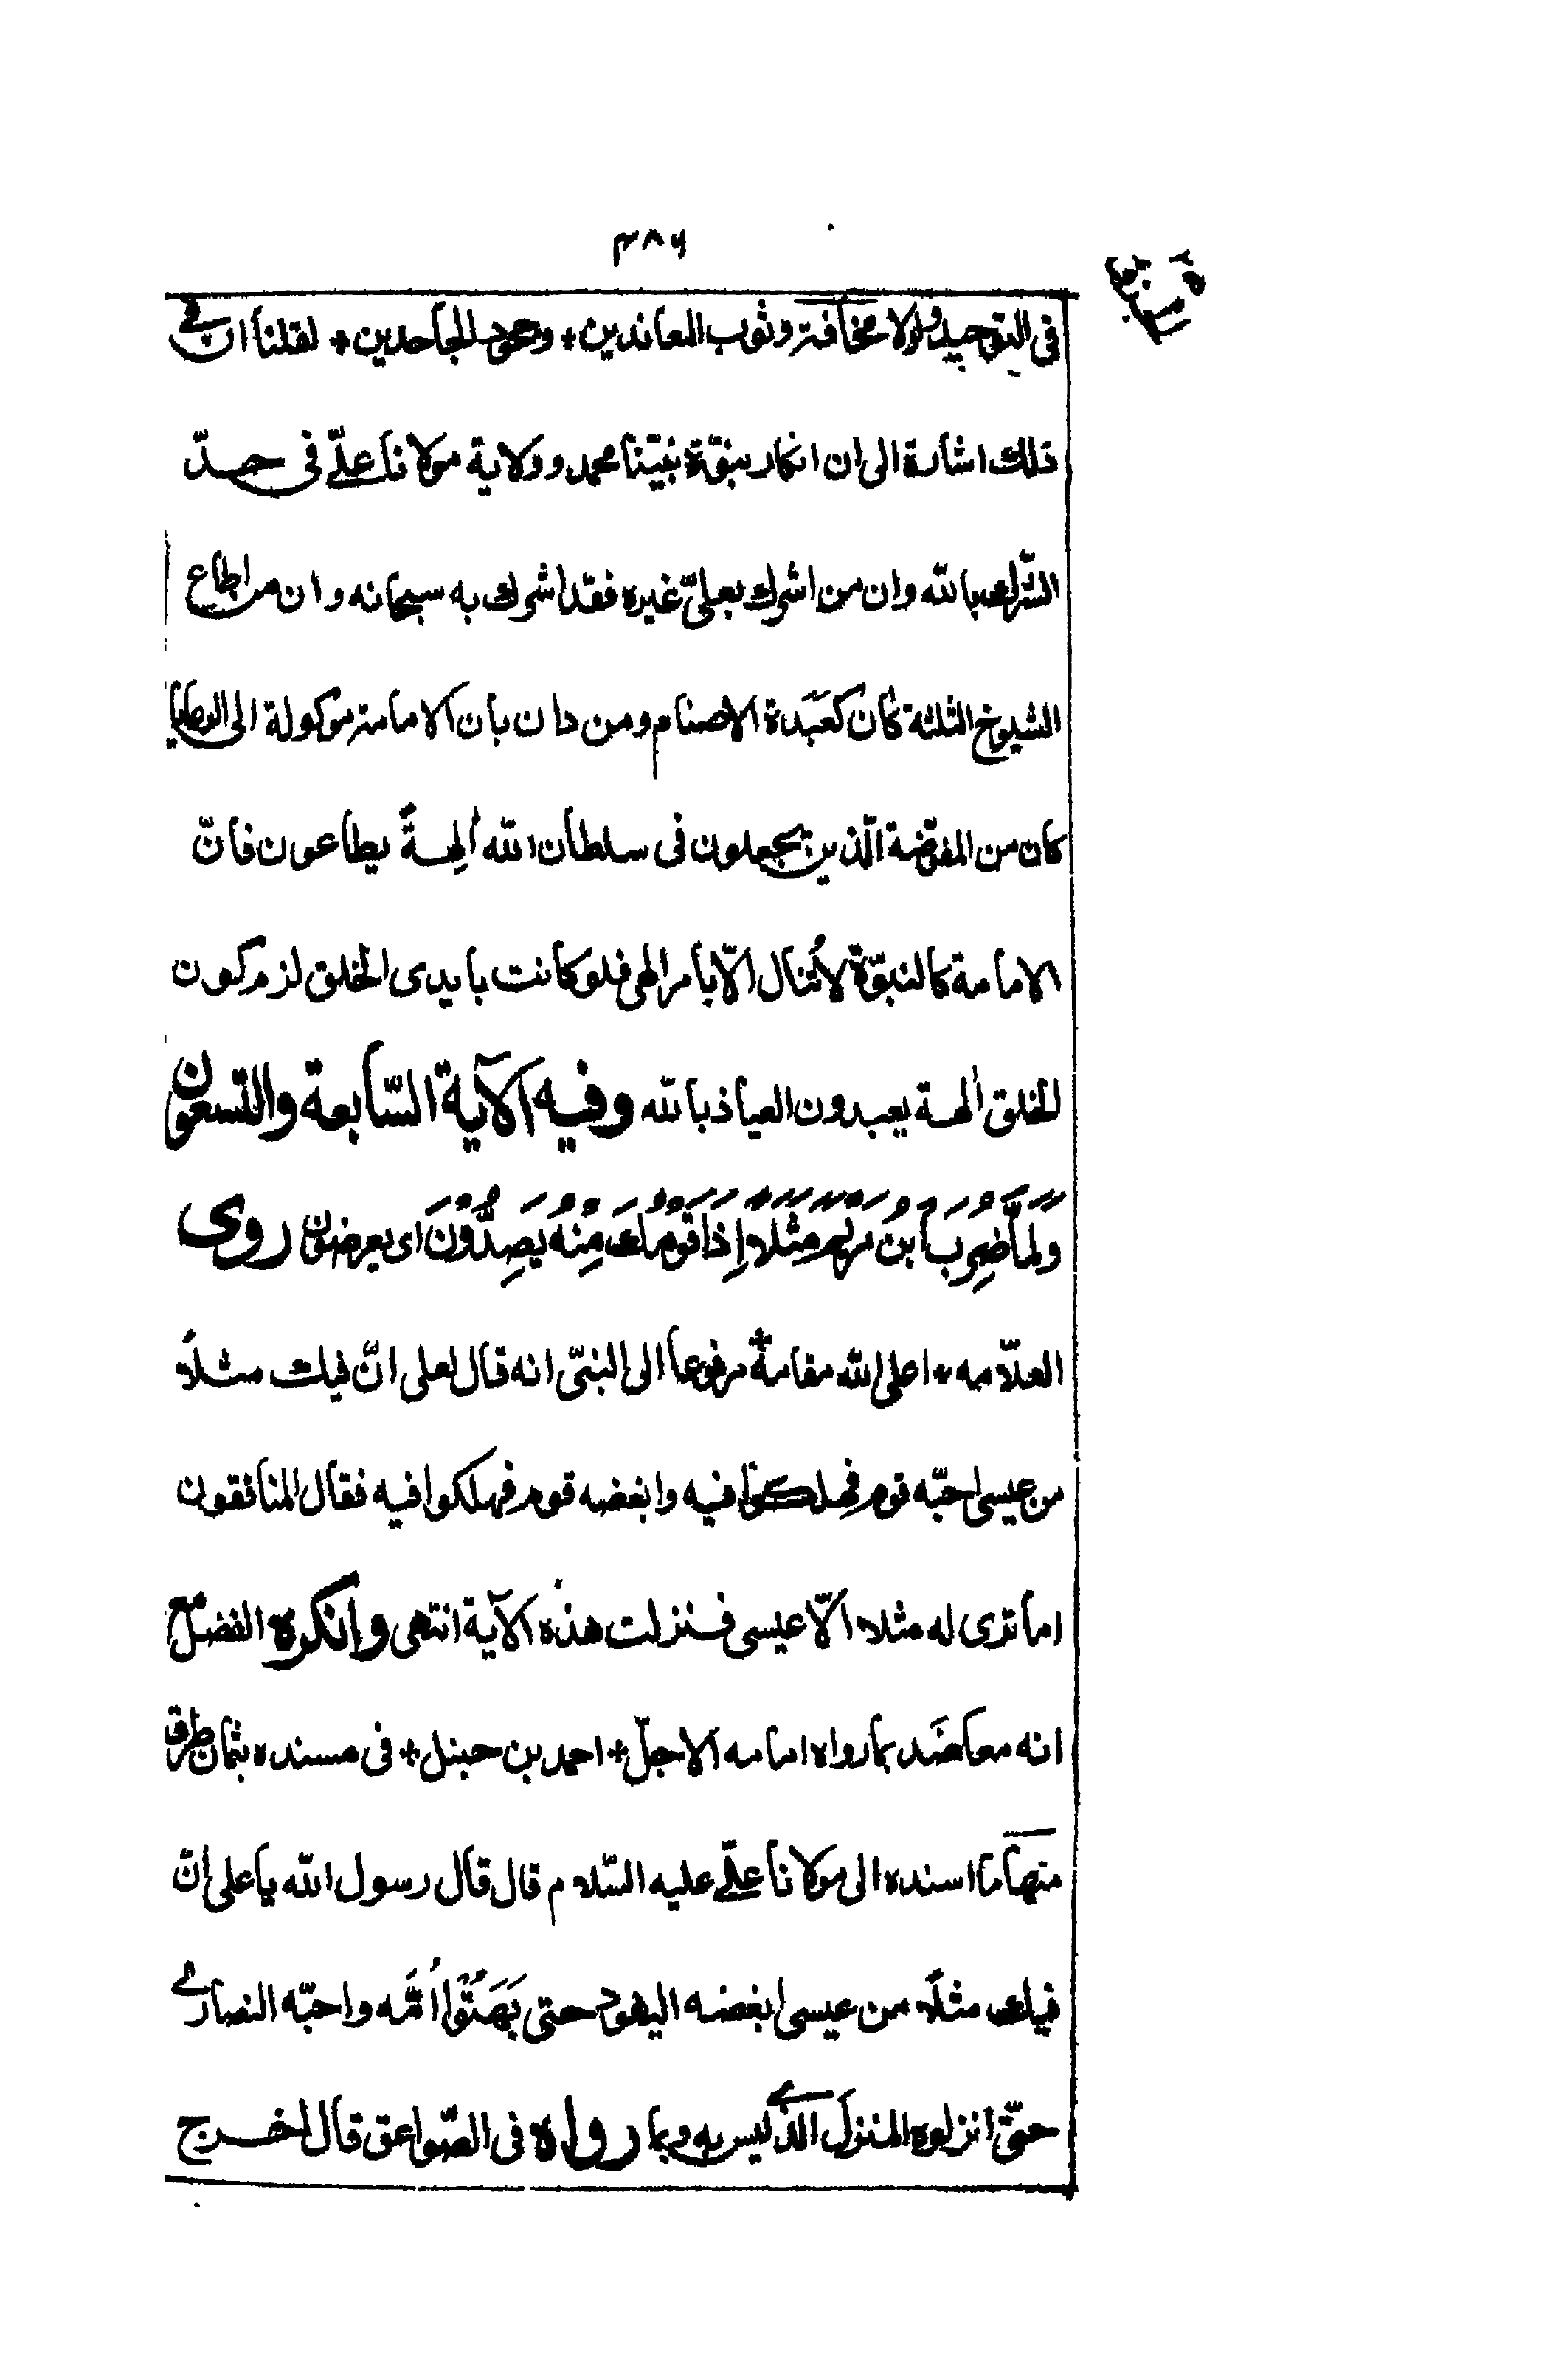 ٣٨٦
فى التوحيد ولولا مخافة وثوب المعاندين * وجحود الجاحدين * لقلنا ان فى
ذلك اشارة الى ان انكار نبوّة نبيّنا محمد وولاية مولانا علىّ فى حدّ
الشّرك بالله وان من اشرك بعلىّ غيره فقد اشرك به سبحانه وان من اطاع
الشيوخ الثلثة كان كعَبَدة الاصنام ومن دان بان الامامة موكولة الى البرايا
كان من المفوّضة الّذين يجعلون فى سلطان الله الٰهةً يطاعون فانّ
الامامة كالنبوّة لا تُنال الّا بامر الهى فلو كانت بايدى الخلق لزم كون
الخلق الٰهة يعبدون العياذ بالله وفيه الآية السّابعة والتسعون
وَلَمَّا ضُرِبَ ابْنُ مَرْيَمَ مَثَلًا اِذَا قَوْمُكَ مِنْهُ يَصِدُّوْنَ اى يعرضون روى
العلّامه * اعلى الله مقامهٗ * مرفوعاً الى النبىّ انه قال لعلى انّ فيك مثلًا
من عيسى احبّه قوم فهلكوا فيه وابغضه قوم فهلكوا فيه فقال المنافقون
اما ترى له مثلا الّا عيسى فنزلت هذه الآية انتهى وانكره الفضل مع
انه معاضَد بما رواه امامه الاجلّ * احمد بن حنبل * فى مسنده بثمان طرق
منها ما اسنده الى مولانا علىّ عليه السّلام قال قال رسول الله يا على انّ
فيك مثلًا من عيسى ابغضه اليهود حتى بَهَتُوْا اُمَّه واحبّه النصارى
حتّى انزلوه المنزل الذى ليس به وبما رواه فى الصّواعق قال اخرج